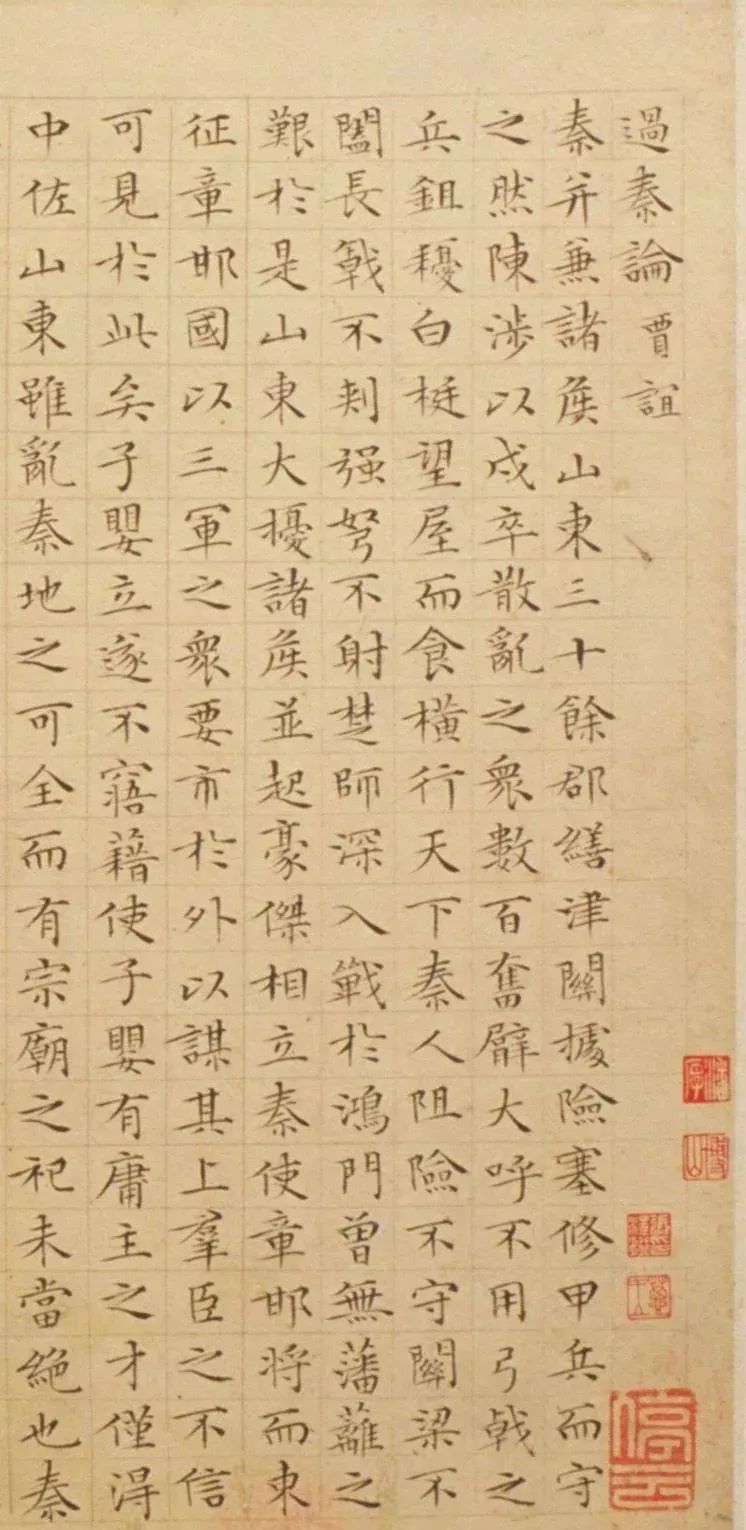 過秦論 賈誼
秦并兼諸侯山東三十餘郡繕津關據險塞修甲兵而守
之然陳涉以戍卒散亂之衆數百奮臂大呼不用弓戟之
兵鉏耰白梃望屋而食橫行天下秦人阻險不守關梁不
闔長戟不刺强弩不射楚師深入戰於鴻門曾無藩籬之
艱於是山東大擾諸侯並起豪傑相立秦使章邯將而東
征章邯國以三軍之衆要市於外以謀其上羣臣之不信
可見於此矣子嬰立遂不寤藉使子嬰有庸主之才僅得
中佐山東雖亂秦地之可全而有宗廟之祀未當絶也秦
停雲